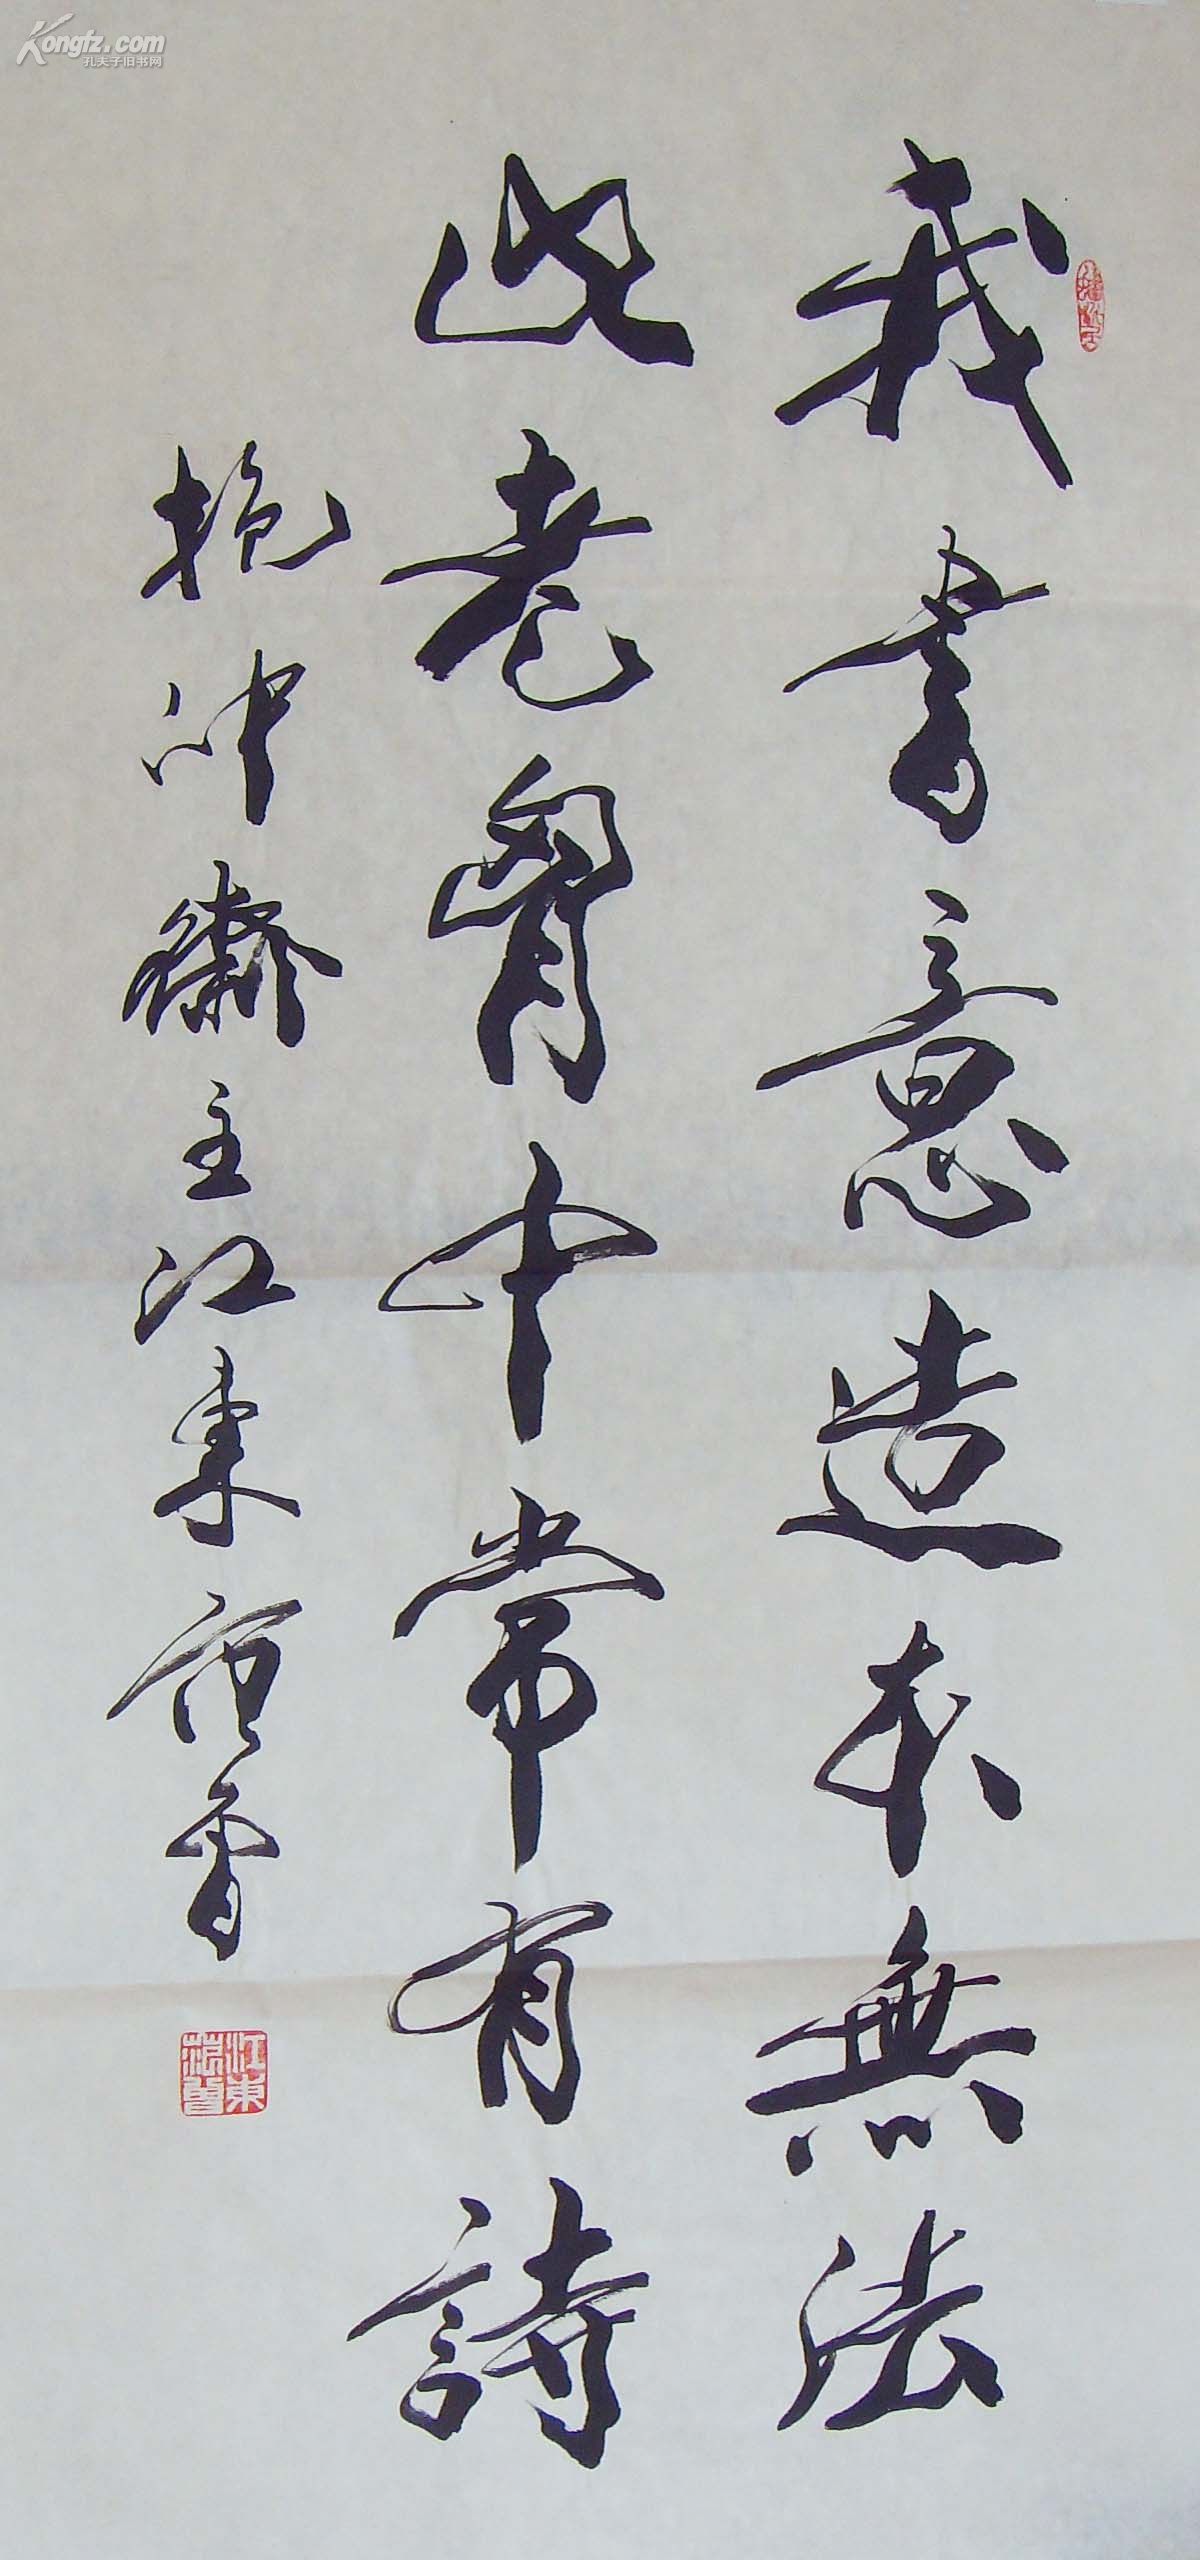 我書意造本無法
此老胷中常有詩
抱冲齋主江東范曾
江東范曾
Kongfz.com
孔夫子旧书网